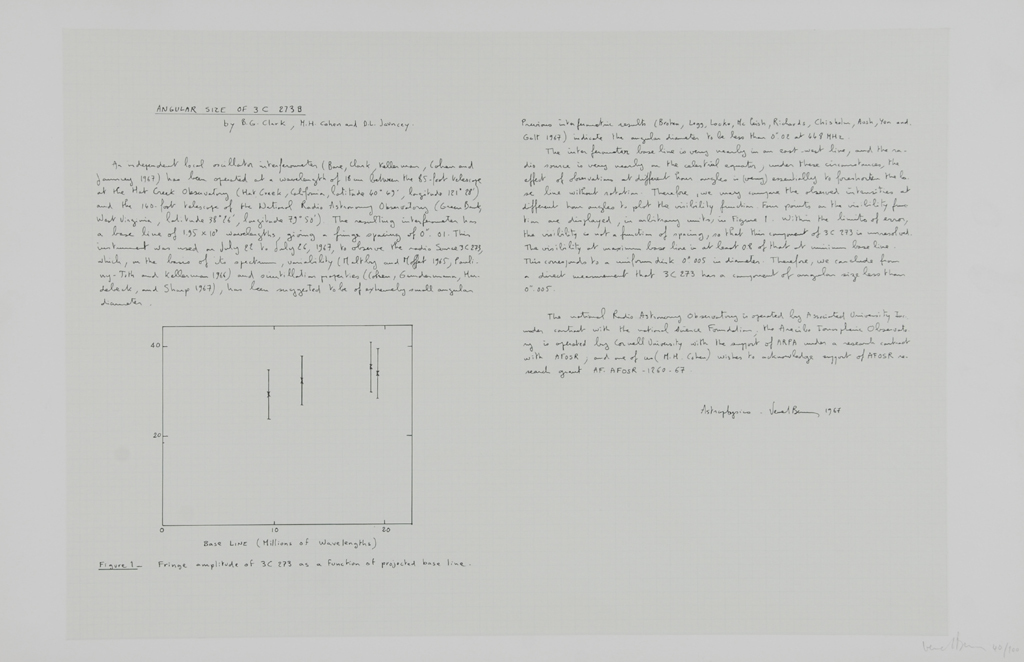 ANGULAR SIZE OF 3C 273B
by B.G. Clark, M.H. Cohen and D.L. Jauncey.
An independent local oscillator interferometer (Bare, Clark, Kellerman, Cohen and
Jauncey 1967) has been operated at a wavelength of 18 cm between the 85-foot telescope
at the Hat Creek Observatory (Hat Creek, California, latitude 60° 49', longitude 121° 28')
and the 140-foot telescope of the National Radio Astronomy Observatory (Green Bank,
West Virginia, latitude 38° 26', longitude 79° 50') The resulting interferometer has
a base line of wavelengths, giving a fringe spacing of 0".01. This
instrument was used on July 22 to July 26, 1967, to observe the radio Source 3C 273,
which, on the basis of its spectrum, variability (Maltby and Moffat 1965, Pauli-
ny-Toth and Kellerman 1966) and scintillation properties (Cohen, Gundermann, Har-
debeck, and Sharp 1967), has been suggested to be of extremely small angular
diameter.
40
20
0 10 20
BASE LINE (Millions of Wavelengths)
Figure 1 - Fringe amplitude of 3C 273 as a function of projected base line.
Previous interferometric results (Broten, Legg, Locke, Mc Leish, Richards, Chisholm, Gush, Yen and
Galt 1967) indicate the angular diameter to be less than 0".02 at 448 MHz.
The interferometer base line is very nearly in an east west line, and the ra-
dio source is very nearly on the celestial equator, under these circumstances, the
effect of observations at different hour angles is essentially to foreshorten the ba
se line without rotation. Therefore, we may compare the observed intensities at
different hour angles to plot the visibility function Four points on the visibility func
tion are displayed, in arbitrary units, in Figure 1. Within the limits of error,
the visibility is not a function of spacing, so that this component of 3C 273 is unresolved.
The visibility at maximum base line is at least 0.8 of that at minimum base line.
This corresponds to a uniform disk 0".005 in diameter. Therefore, we can conclude from
a direct measurement that 3C 273 has a component of angular size less than
0".005.
The national Radio Astronomy Observatory is operated by Associated University In.
under contract with the national Science Foundation, the Arecibo Ionospheric Observato
ry is operated by Cornell University with the support of ARPA under a research contract
with AFOSR, and one of us (M.H. Cohen) wishes to acknowledge support of AFOSR re-
search grant AF. AFOSR -1260-67.
Astrophysics - 1968